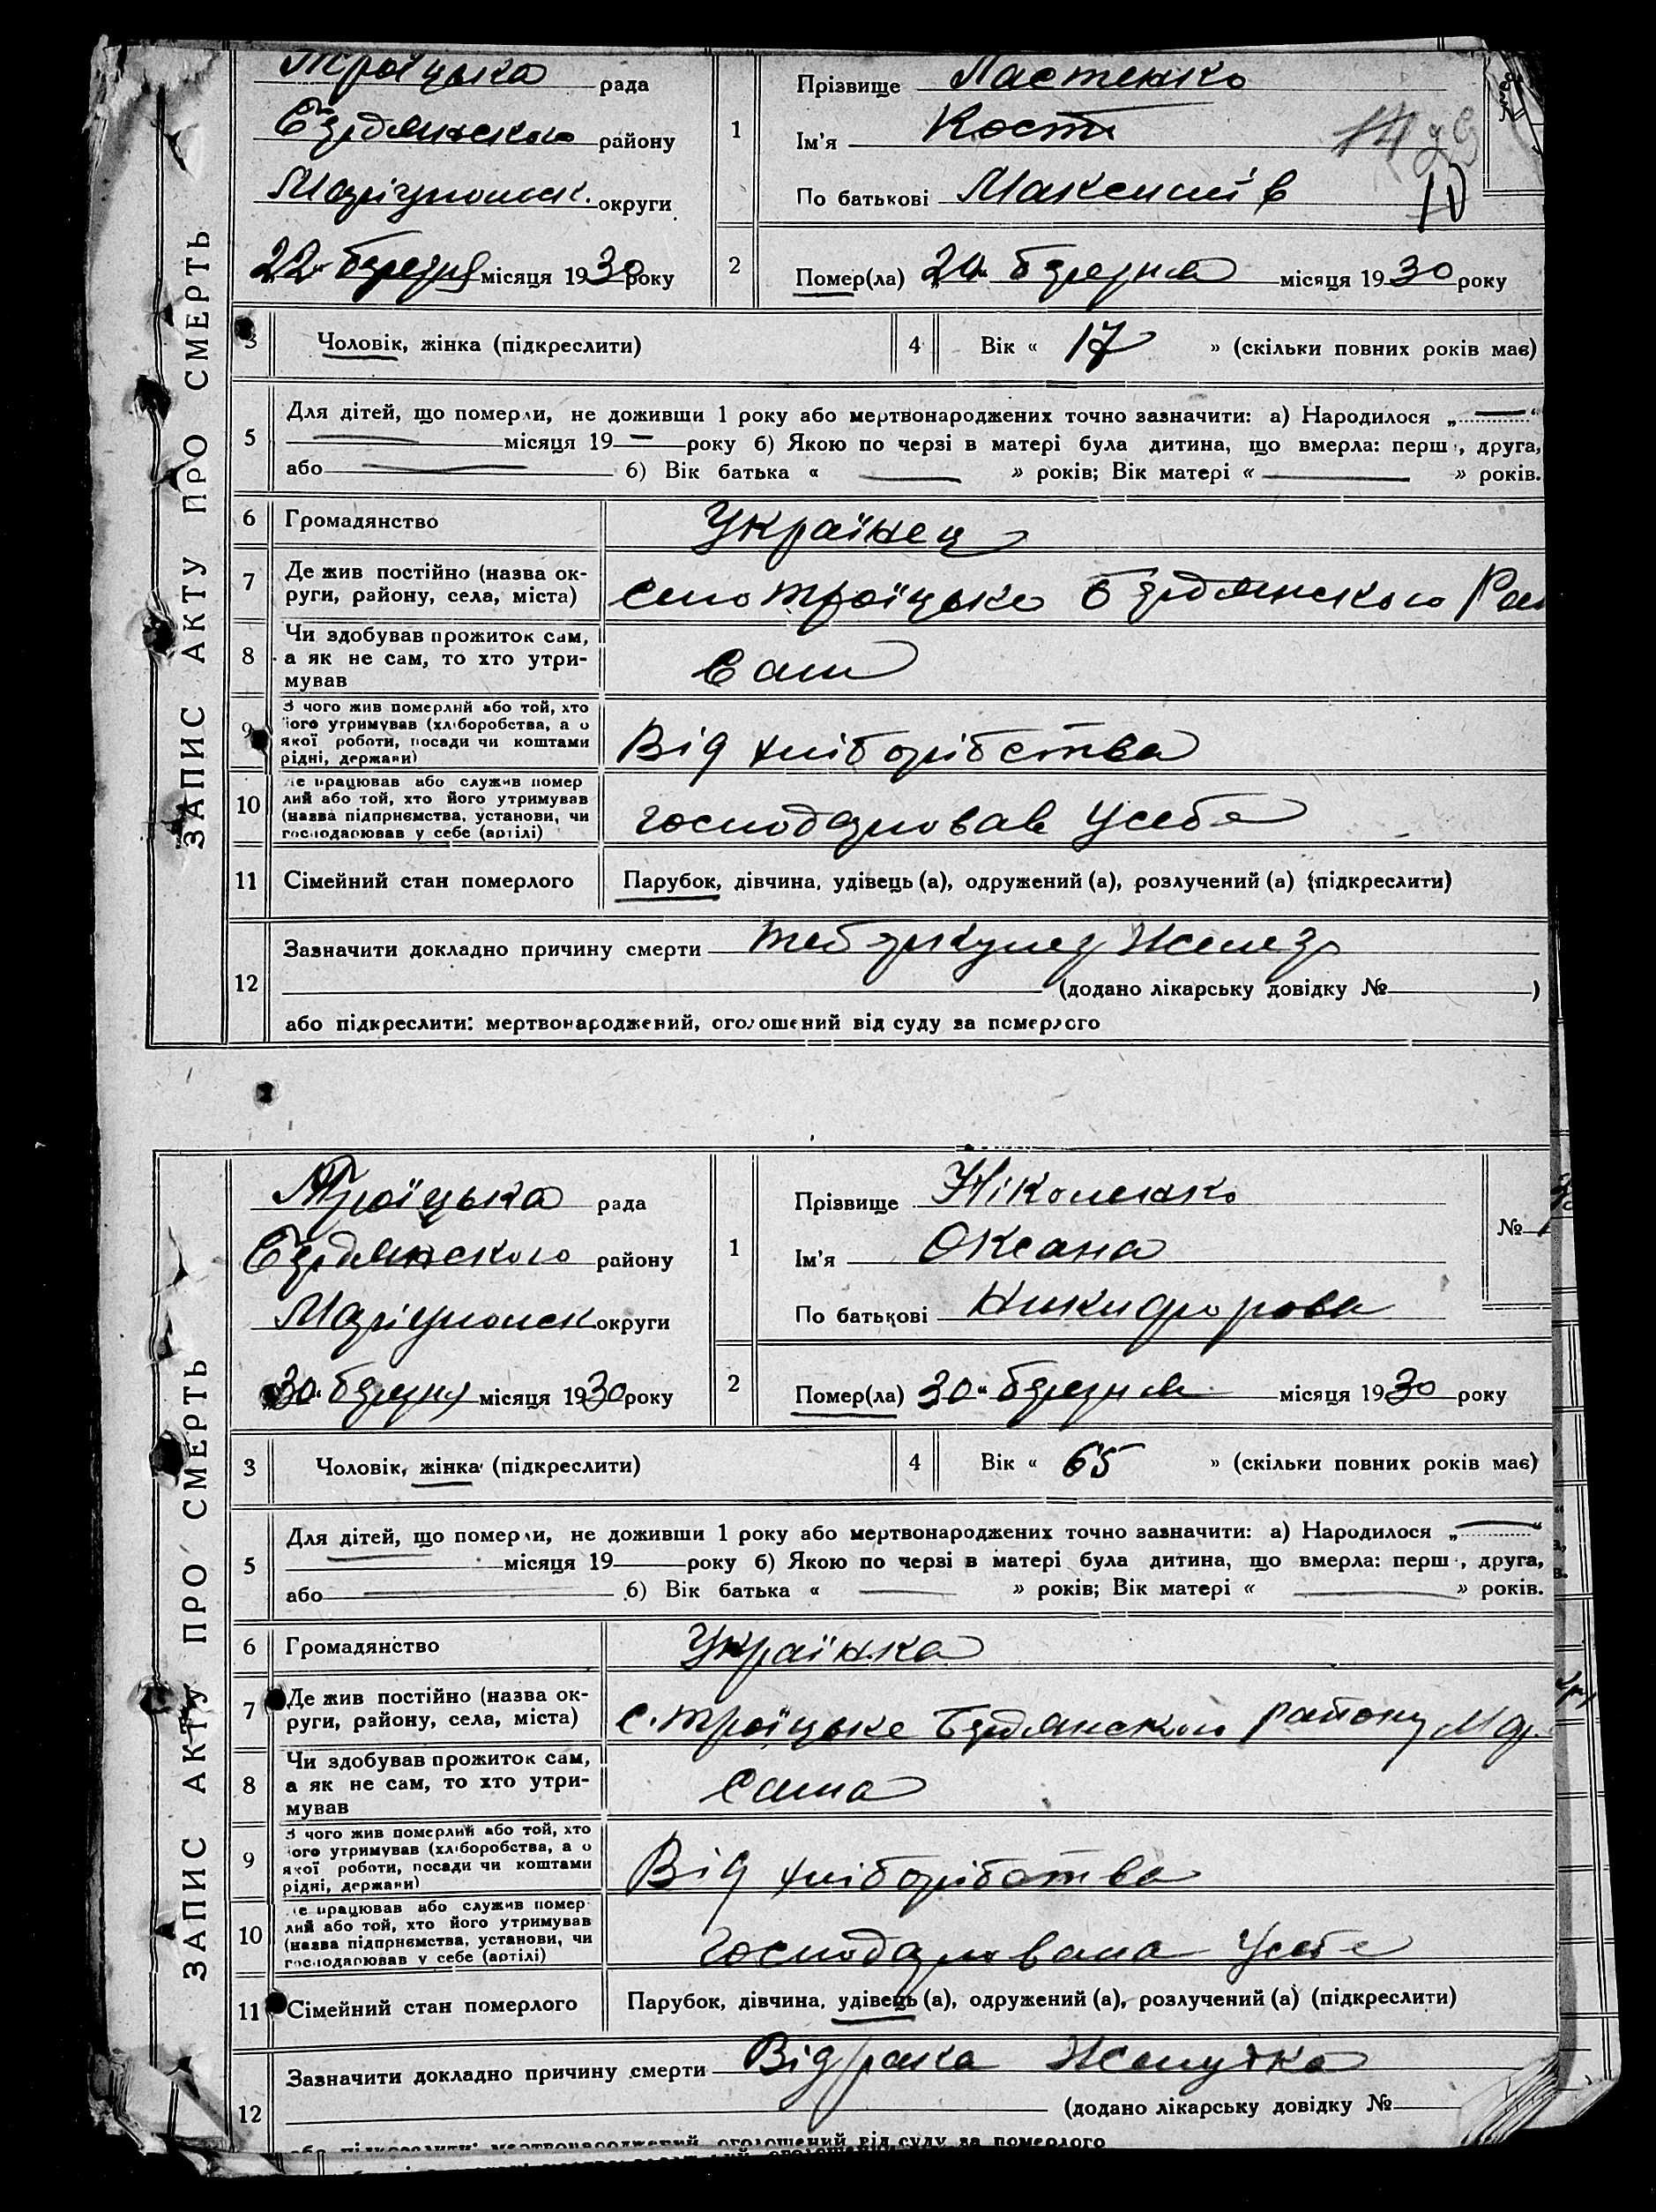 ЗАПИС АКТУ ПРО СМЕРТЬ
Троїцька рада
Бердянского району
Маріупольськ. округи
22 березня місяця 1930 року
1 Прізвище Ластенко
Ім'я Кость
По батькові Максимів
2 Помер(ла) 20 березня місяця 1930 року
3 Чоловік, жінка (підкреслити)
4 Вік « 17 » (скільки повних років має)
5 Для дітей, що померли, не доживши 1 року або мертвонароджених точно зазначити: а) Народилося „—“
місяця 19— року б) Якою по черзі в матері була дитина, що вмерла: перша, друга,
або — б) Вік батька « — » років; Вік матері « — » років.
6 Громадянство Українец
7 Де жив постійно (назва ок-
руги, району, села, міста) село Троїцьке Бердянского
8 Чи здобував прожиток сам,
а як не сам, то хто утри-
мував
Сам
9 З чого жив померлий або той, хто
його утримував (хліборобства, а о
якої роботи, посади чи коштами
рідні, держави)
Від хліборібства
10 Де працював або служив помер
лий або той, хто його утримував
(назва підприємства, установи, чи
господарював у себе (артілі)
господарював Усебе
11 Сімейний стан померлого Парубок, дівчина, удівець (а), одружений (а), розлучений (а) (підкреслити)
12 Зазначити докладно причину смерти
(додано лікарську довідку № )
або підкреслити: мертвонароджений, оголошений від суду за померлого
ЗАПИС АКТУ ПРО СМЕРТЬ
Троїцька рада
Бердянского району
Маріупольск округи
30 березня місяця 1930 року
1 Прізвище Ніколенко
Ім'я Оксана
По батькові Никифорова
№
2 Помер(ла) 30 березня місяця 1930 року
3 Чоловік, жінка (підкреслити)
4 Вік « 65 » (скільки повних років має)
5 Для дітей, що померли, не доживши 1 року або мертвонароджених точно зазначити: а) Народилося „—“
місяця 19— року б) Якою по черзі в матері була дитина, що вмерла: перша, друга,
або — б) Вік батька « — » років; Вік матері « — » років.
6 Громадянство Українка
7 Де жив постійно (назва ок-
руги, району, села, міста) с. Троїцьке Бердянского району Мар.
8 Чи здобував прожиток сам,
а як не сам, то хто утри-
мував
Сама
9 З чого жив померлий або той, хто
його утримував (хліборобства, а о
якої роботи, посади чи коштами
рідні, держави)
Від хліборібства
10 Де працював або служив помер
лий або той, хто його утримував
(назва підприємства, установи, чи
господарював у себе (артілі)
господарювала Усебе
11 Сімейний стан померлого Парубок, дівчина, удівець (а), одружений (а), розлучений (а) (підкреслити)
12 Зазначити докладно причину смерти Від рака Желутка
(додано лікарську довідку №
або підкреслити: мертвонароджений, оголошений від суду за померлого